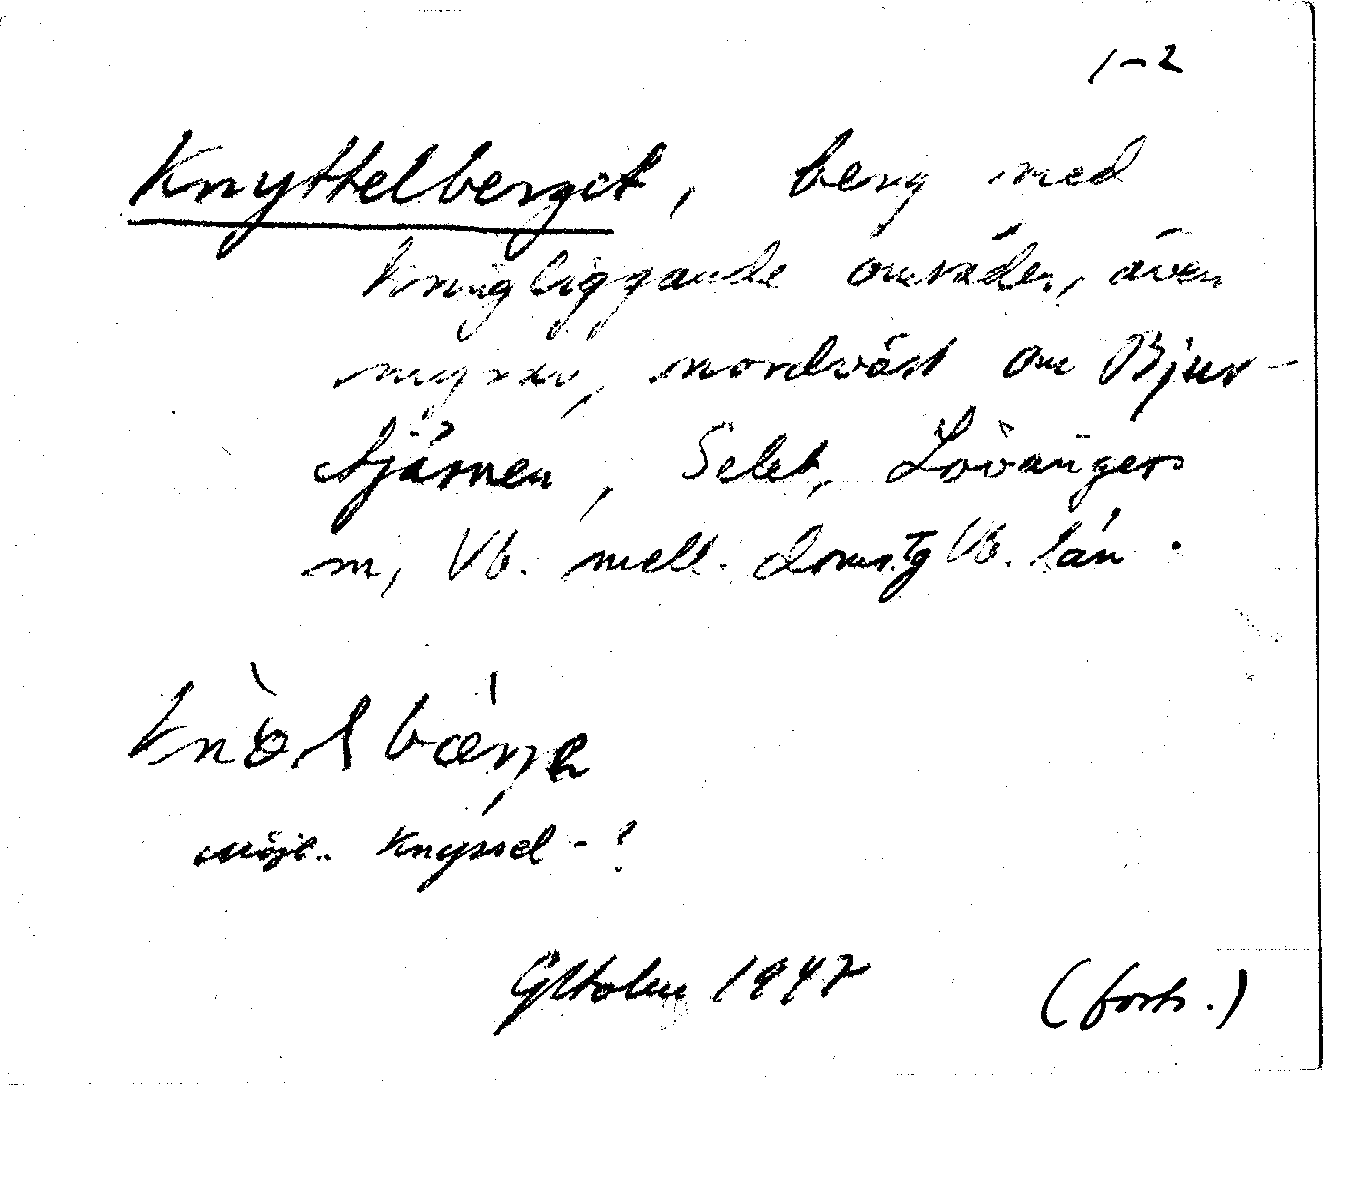 1-2
Knyttelberget, berg med
kringliggande områden, även
myrar, nordväst om Bjur-
tjärnen, Selet, Lövångers
sn, Vb. mell. doms.tg Vb. län.
möjl. Knyssel-?
GHolm 1947 (forts.)